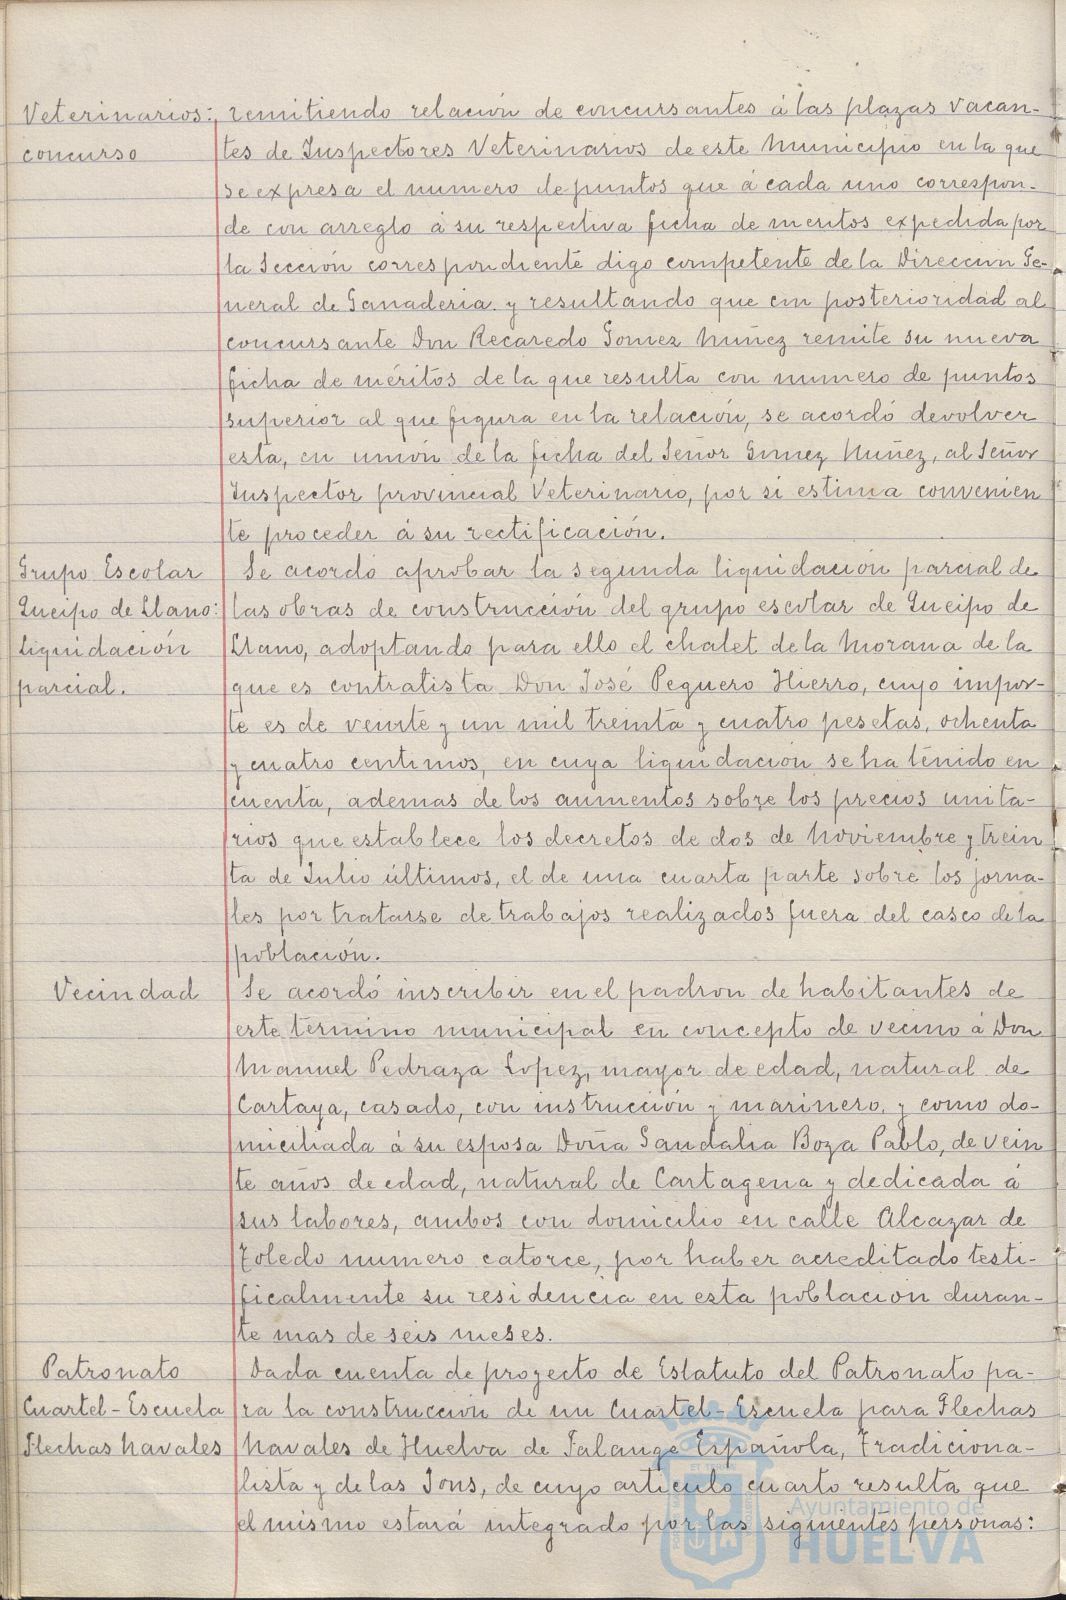 Veterinarios: concurso
remitiendo relación de concursantes á las plazas vacan-
tes de Inspectores Veterinarios de este Municipio en la que
se expresa el numero de puntos que á cada uno correspon-
de con arreglo á su respectiva ficha de meritos expedida por
la Sección correspondiente digo competente de la Direccion Ge-
neral de Ganaderia y resultando que con posterioridad al
concursante Don Recaredo Gomez Nuñez remite su nueva
ficha de méritos de la que resulta con numero de puntos
superior al que figura en la relación, se acordó devolver
esta, en unión de la ficha del Señor Gomez Nuñez, al Señor
Inspector provincial Veterinario, por si estima convenien
te proceder á su rectificación.
Grupo Escolar
Queipo de Llano:
liquidación
parcial.
Se acordó aprobar la segunda liquidación parcial de
las obras de construcción del grupo escolar de Queipo de
Llano, adoptando para ello el chalet de la Morana de la
que es contratista Don José Peguero Hierro, cuyo impor-
te es de veinte y un mil treinta y cuatro pesetas, ochenta
y cuatro centimos, en cuya liquidación se ha tenido en
cuenta, ademas de los aumentos sobre los precios unita-
rios que establece los decretos de dos de Noviembre y trein
ta de Julio últimos, el de una cuarta parte sobre los jorna-
les por tratarse de trabajos realizados fuera del casco de la
población.
Vecindad
Se acordó inscribir en el padron de habitantes de
este termino municipal en concepto de vecino á Don
Manuel Pedraza Lopez, mayor de edad, natural de
Cartaya, casado, con instrucción y marinero, y como do-
miciliada á su esposa Doña Sandalia Boza Pablo, de vein
te años de edad, natural de Cartagena y dedicada á
sus labores, ambos con domicilio en calle Alcazar de
Toledo numero catorce, por haber acreditado testi-
ficalmente su residencia en esta población duran-
te mas de seis meses.
Patronato
Cuartel-Escuela
Flechas Navales
Dada cuenta de proyecto de Estatuto del Patronato pa-
ra la construccion de un Cuartel-Escuela para Flechas
Navales de Huelva de Falange Española, Tradiciona-
lista y de las Jons, de cuyo articulo cuarto resulta que
el mismo estará integrado por las siguientes personas:
Ayuntamiento de
HUELVA